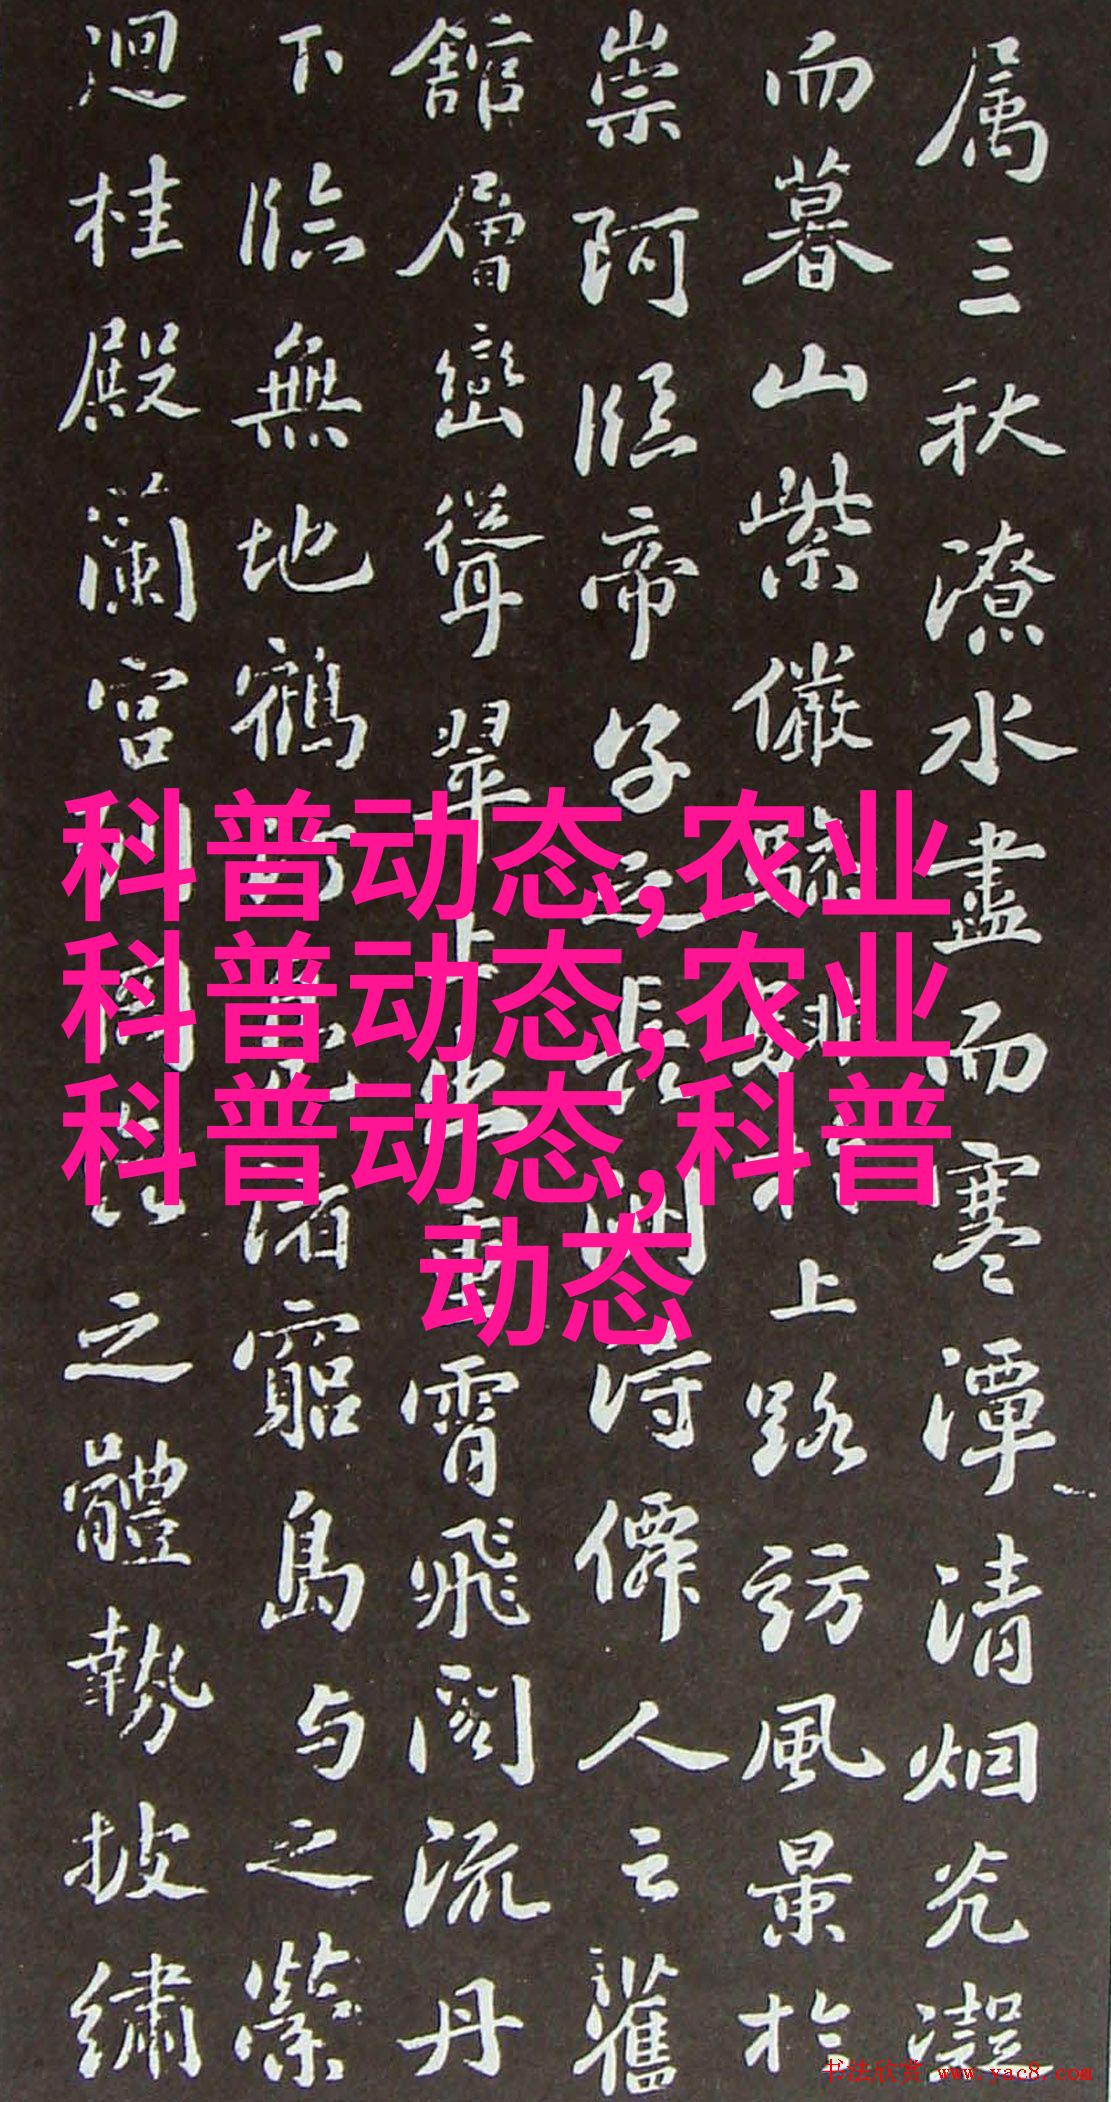 属三秋潦水盡而寒潭清烟光凝
而暮山紫儼驂騑於上路訪風景於
崇阿臨帝子之長洲得僊人之舊
舘層巒聳翠上出重霄飛閣流丹
下臨無地鶴渚窮島与之縈
迴桂殿蘭宫列岡之體勢披繡
科普动态,农业
科普动态,农业
科普动态,科普
动态
书法欣赏 www.yac8.com